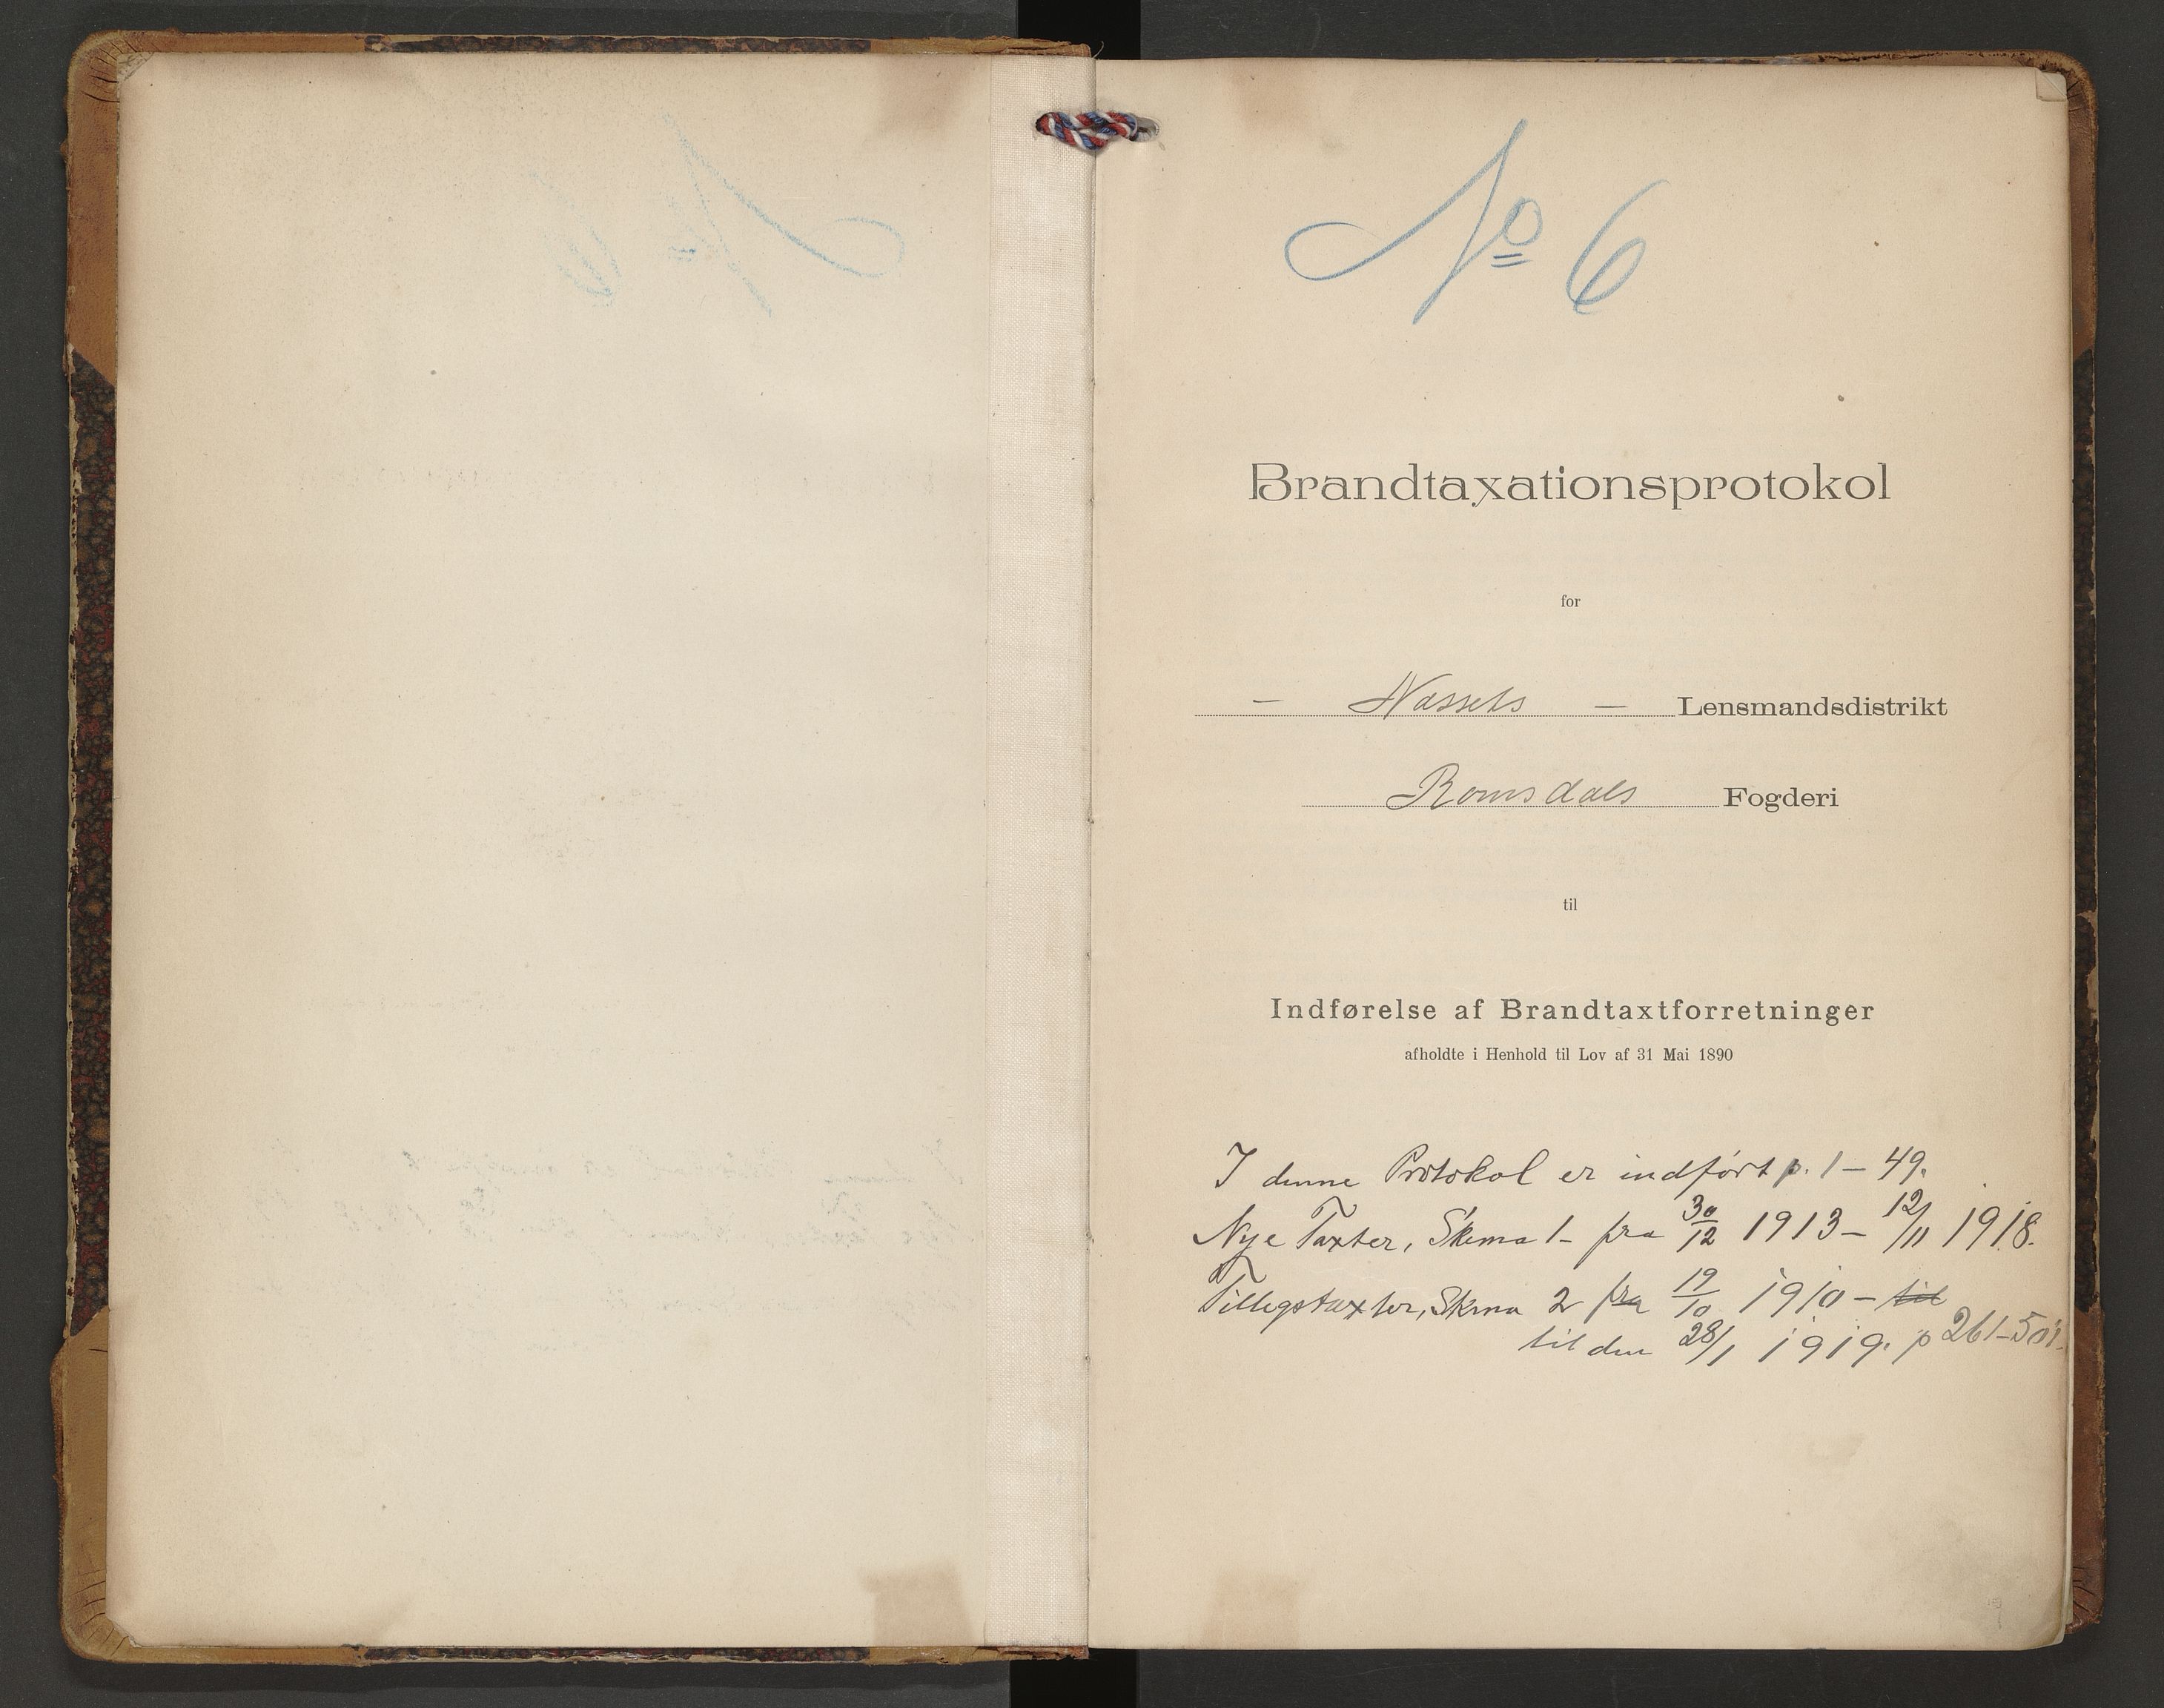 No 6
Brandtaxationsprotokol
for
- Nassets - Lensmandsdistrikt
Romsdals Fogderi
til
Indførelse af Brandtaxtforretninger
afholdte i Henhold til Lov af 31 Mai 1890
I denne Protokol er indført p. 1 - 49.
Nye Taxter, Skema 1 - fra 30/12 1913 - 12/11 1918.
Tillegstaxter, Skma 2 fra 19/10 1910 - til
til den 28/1 1919. p 261-501.